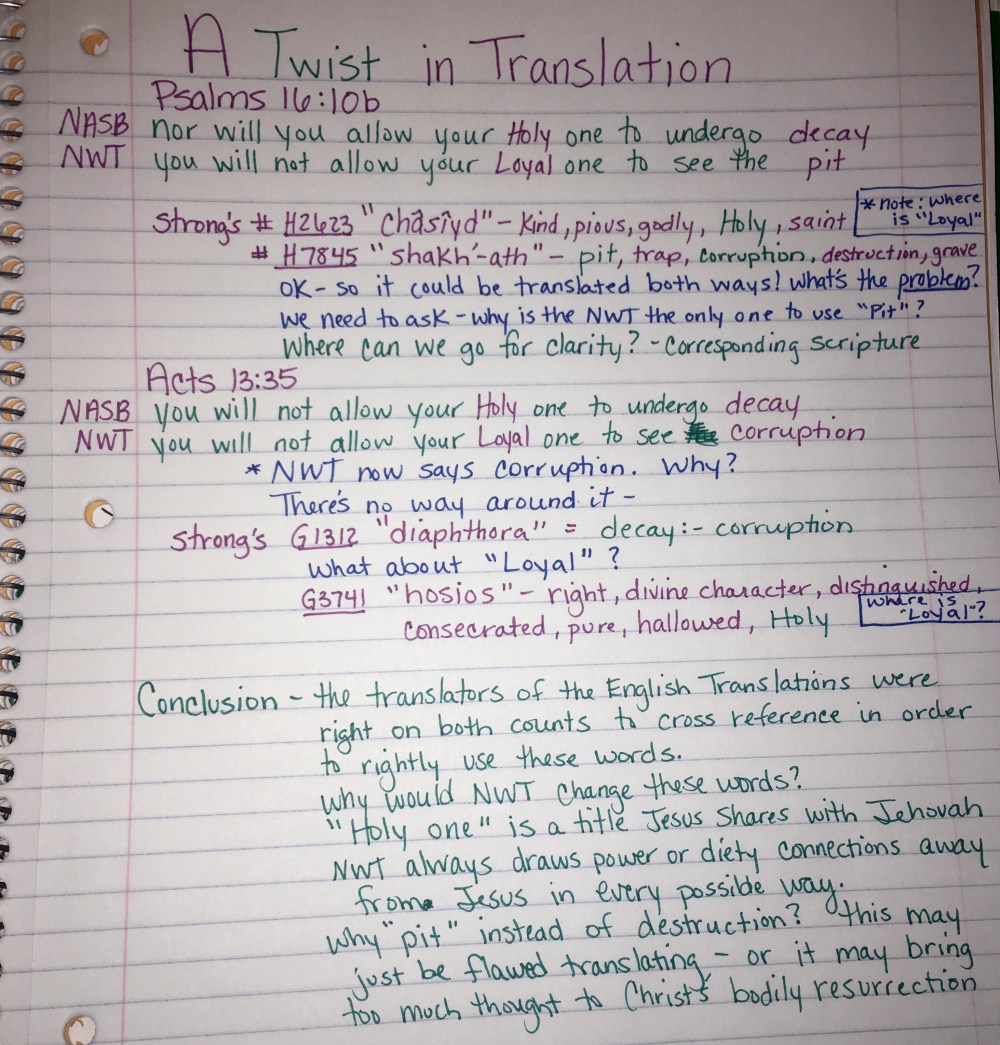 A Twist in Translation
Psalms 16:10b
NASB nor will you allow your Holy one to undergo decay
NWT you will not allow your Loyal one to see the pit
Strong's # H2623 "Châsîyd" - Kind, pious, godly, Holy, saint
* note: where is "Loyal"
# H7845 "shakh'-ath" - pit, trap, corruption, destruction, grave
OK - so it could be translated both ways! what's the problem?
We need to ask - why is the NWT the only one to use "Pit"?
Where can we go for clarity? - Corresponding scripture
Acts 13:35
NASB you will not allow your Holy one to undergo decay
NWT you will not allow your Loyal one to see corruption
* NWT now says corruption. Why?
There's no way around it -
Strong's G1312 "diaphthora" = decay:- corruption
What about "Loyal"?
G3741 "hosios" - right, divine character, distinguished,
where is "Loyal"?
Consecrated, pure, hallowed, Holy
Conclusion - the translators of the English Translations were
right on both counts to cross reference in order
to rightly use these words.
Why would NWT change these words?
"Holy one" is a title Jesus shares with Jehovah
NWT always draws power or diety connections away
from Jesus in every possible way.
Why "pit" instead of destruction? this may
just be flawed translating - or it may bring
too much thought to Christ's bodily resurrection